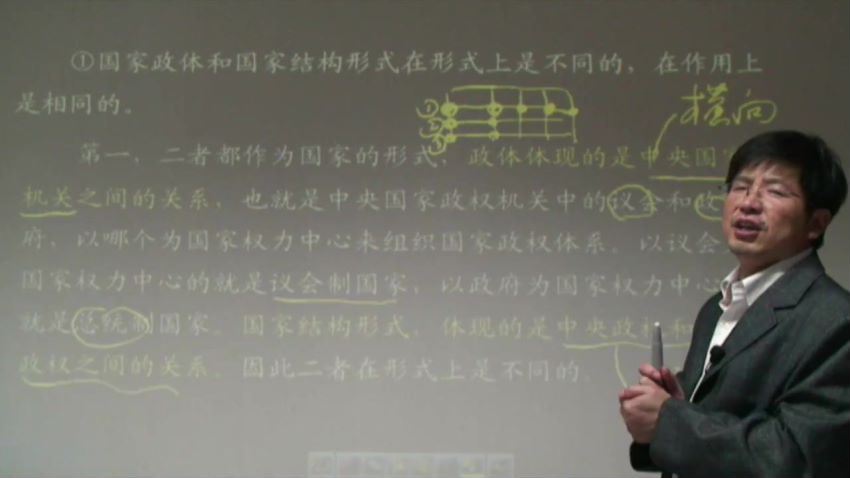 ①国家政体和国家结构形式在形式上是不同的,在作用上
是相同的。
①
②
③
横向
第一,二者都作为国家的形式,政体体现的是中央国
机关之间的关系,也就是中央国家政权机关中的议会和政
府,以哪个为国家权力中心来组织国家政权体系。以议会
国家权力中心的就是议会制国家,以政府为国家权力中心
就是总统制国家。国家结构形式,体现的是中央政权和
政权之间的关系。因此二者在形式上是不同的。